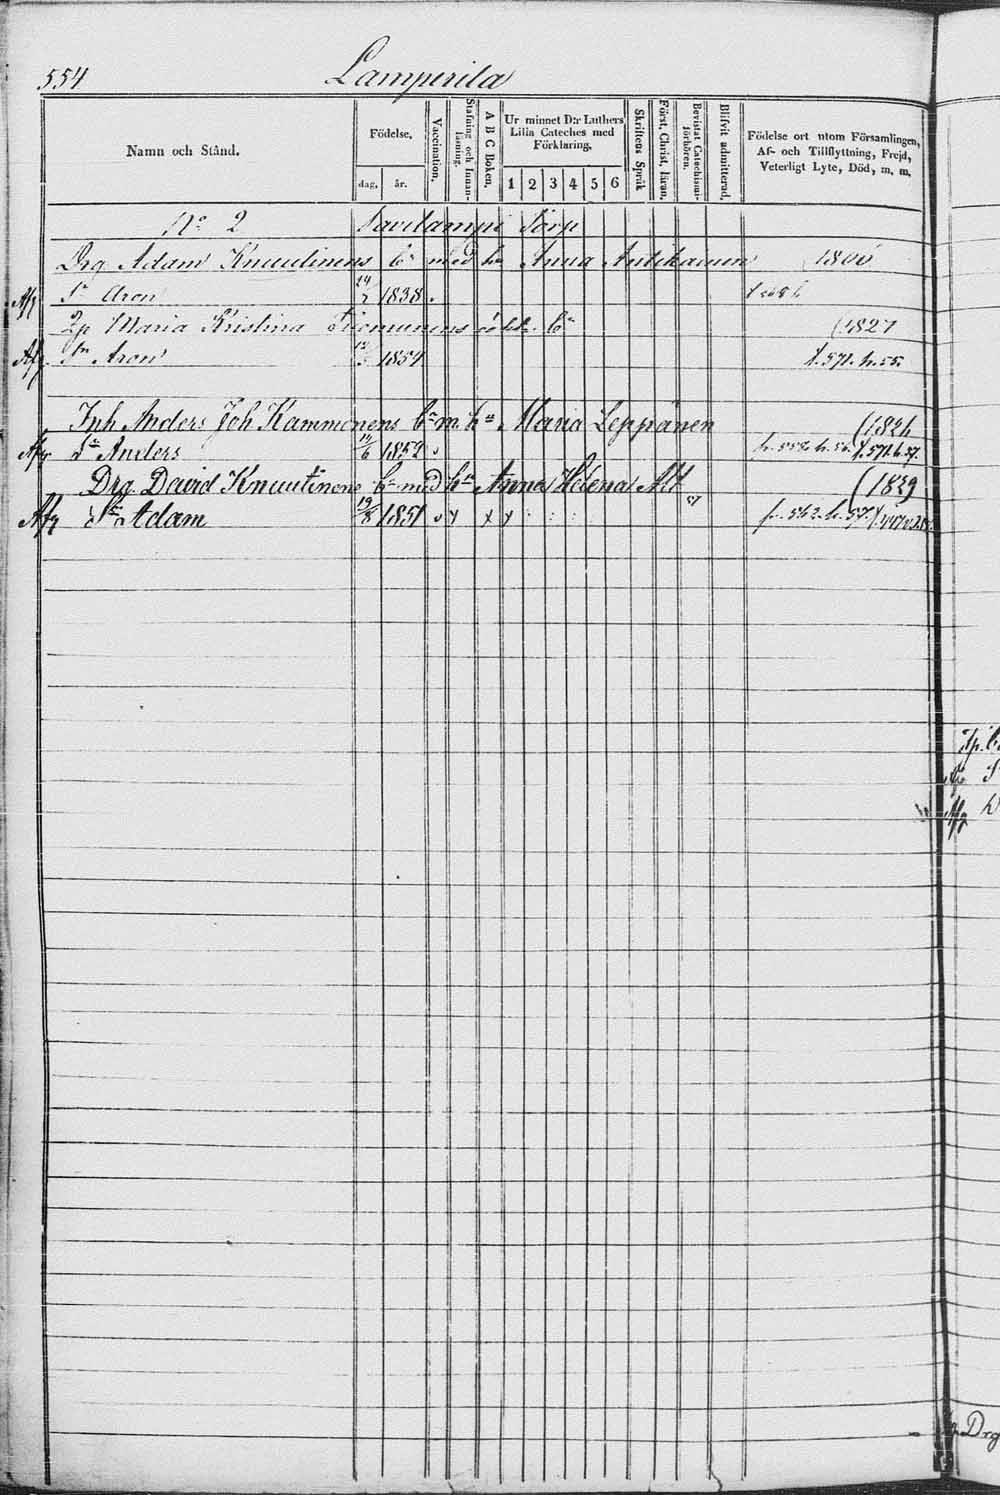 554 Lamperila
Namn och Stånd.
Födelse.
dag. år.
Vaccination.
Stafning och Innan-läsning.
A B C Boken.
Ur minnet D:r Luthers Lilla Cateches med Förklaring.
1 2 3 4 5 6
Skriftens Språk
Först. Christ. läran.
Bevistat Catechismi-förhören.
Blifvit admitterad.
Födelse ort utom Församlingen, Af- och Tillflyttning, Frejd, Veterligt Lyte, Död, m. m.
No 2 Savilampi Torp
Drg Adam Knuutinens bn med hu Anna Antikainen 1800
Afg Sn Aron 24/7 1838
Maria Kristina bn (1827
Afg Sn Aron 1854 f. 571. h. 55.
Inh Anders Joh Kammonens bn m. hu Maria Leppänen (1826
Afg Sn Anders 19/6 1852
Drg. David Knuutinens bn med hu Anna Helena Alt (1829
Afg Sn Adam 19/8 1851 f. 562. h. 57.
Drg